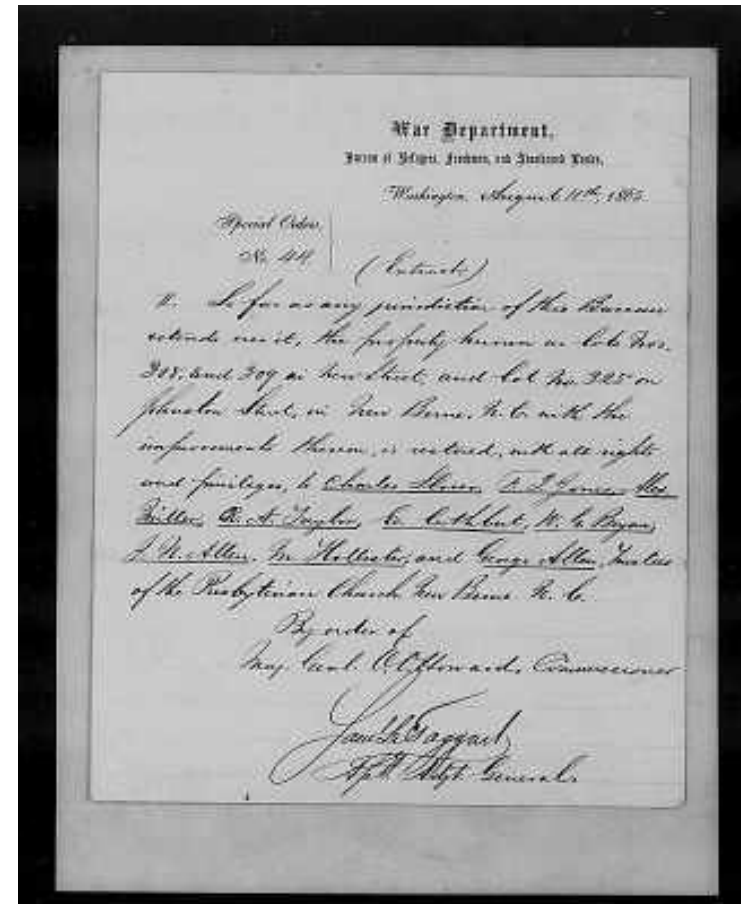 War Department,
Bureau of Refugees, Freedmen, and Abandoned Lands,
Washington, August 11th, 1865.
Special Orders,
No. 44
(Extract)
II. So far as any jurisdiction of this Bureau
extends over it, the property known as Lots Nos.
308, and 309 on New Street, and Lot No. 325 on
Johnston Street, in New Berne, N. C. with the
improvements thereon, is restored, with all rights
and privileges, to Charles
Miller, R. A. Taylor, Cuthbert, W. G. Bryan,
J. N. Allen, M. Hollister, and George Allen, Trustees
of the Presbyterian Church New Berne N. C.
By order of
Maj. Genl. O. O. Howard, Commissioner
Saml. L. Taggart
Asst. Adjt. General.